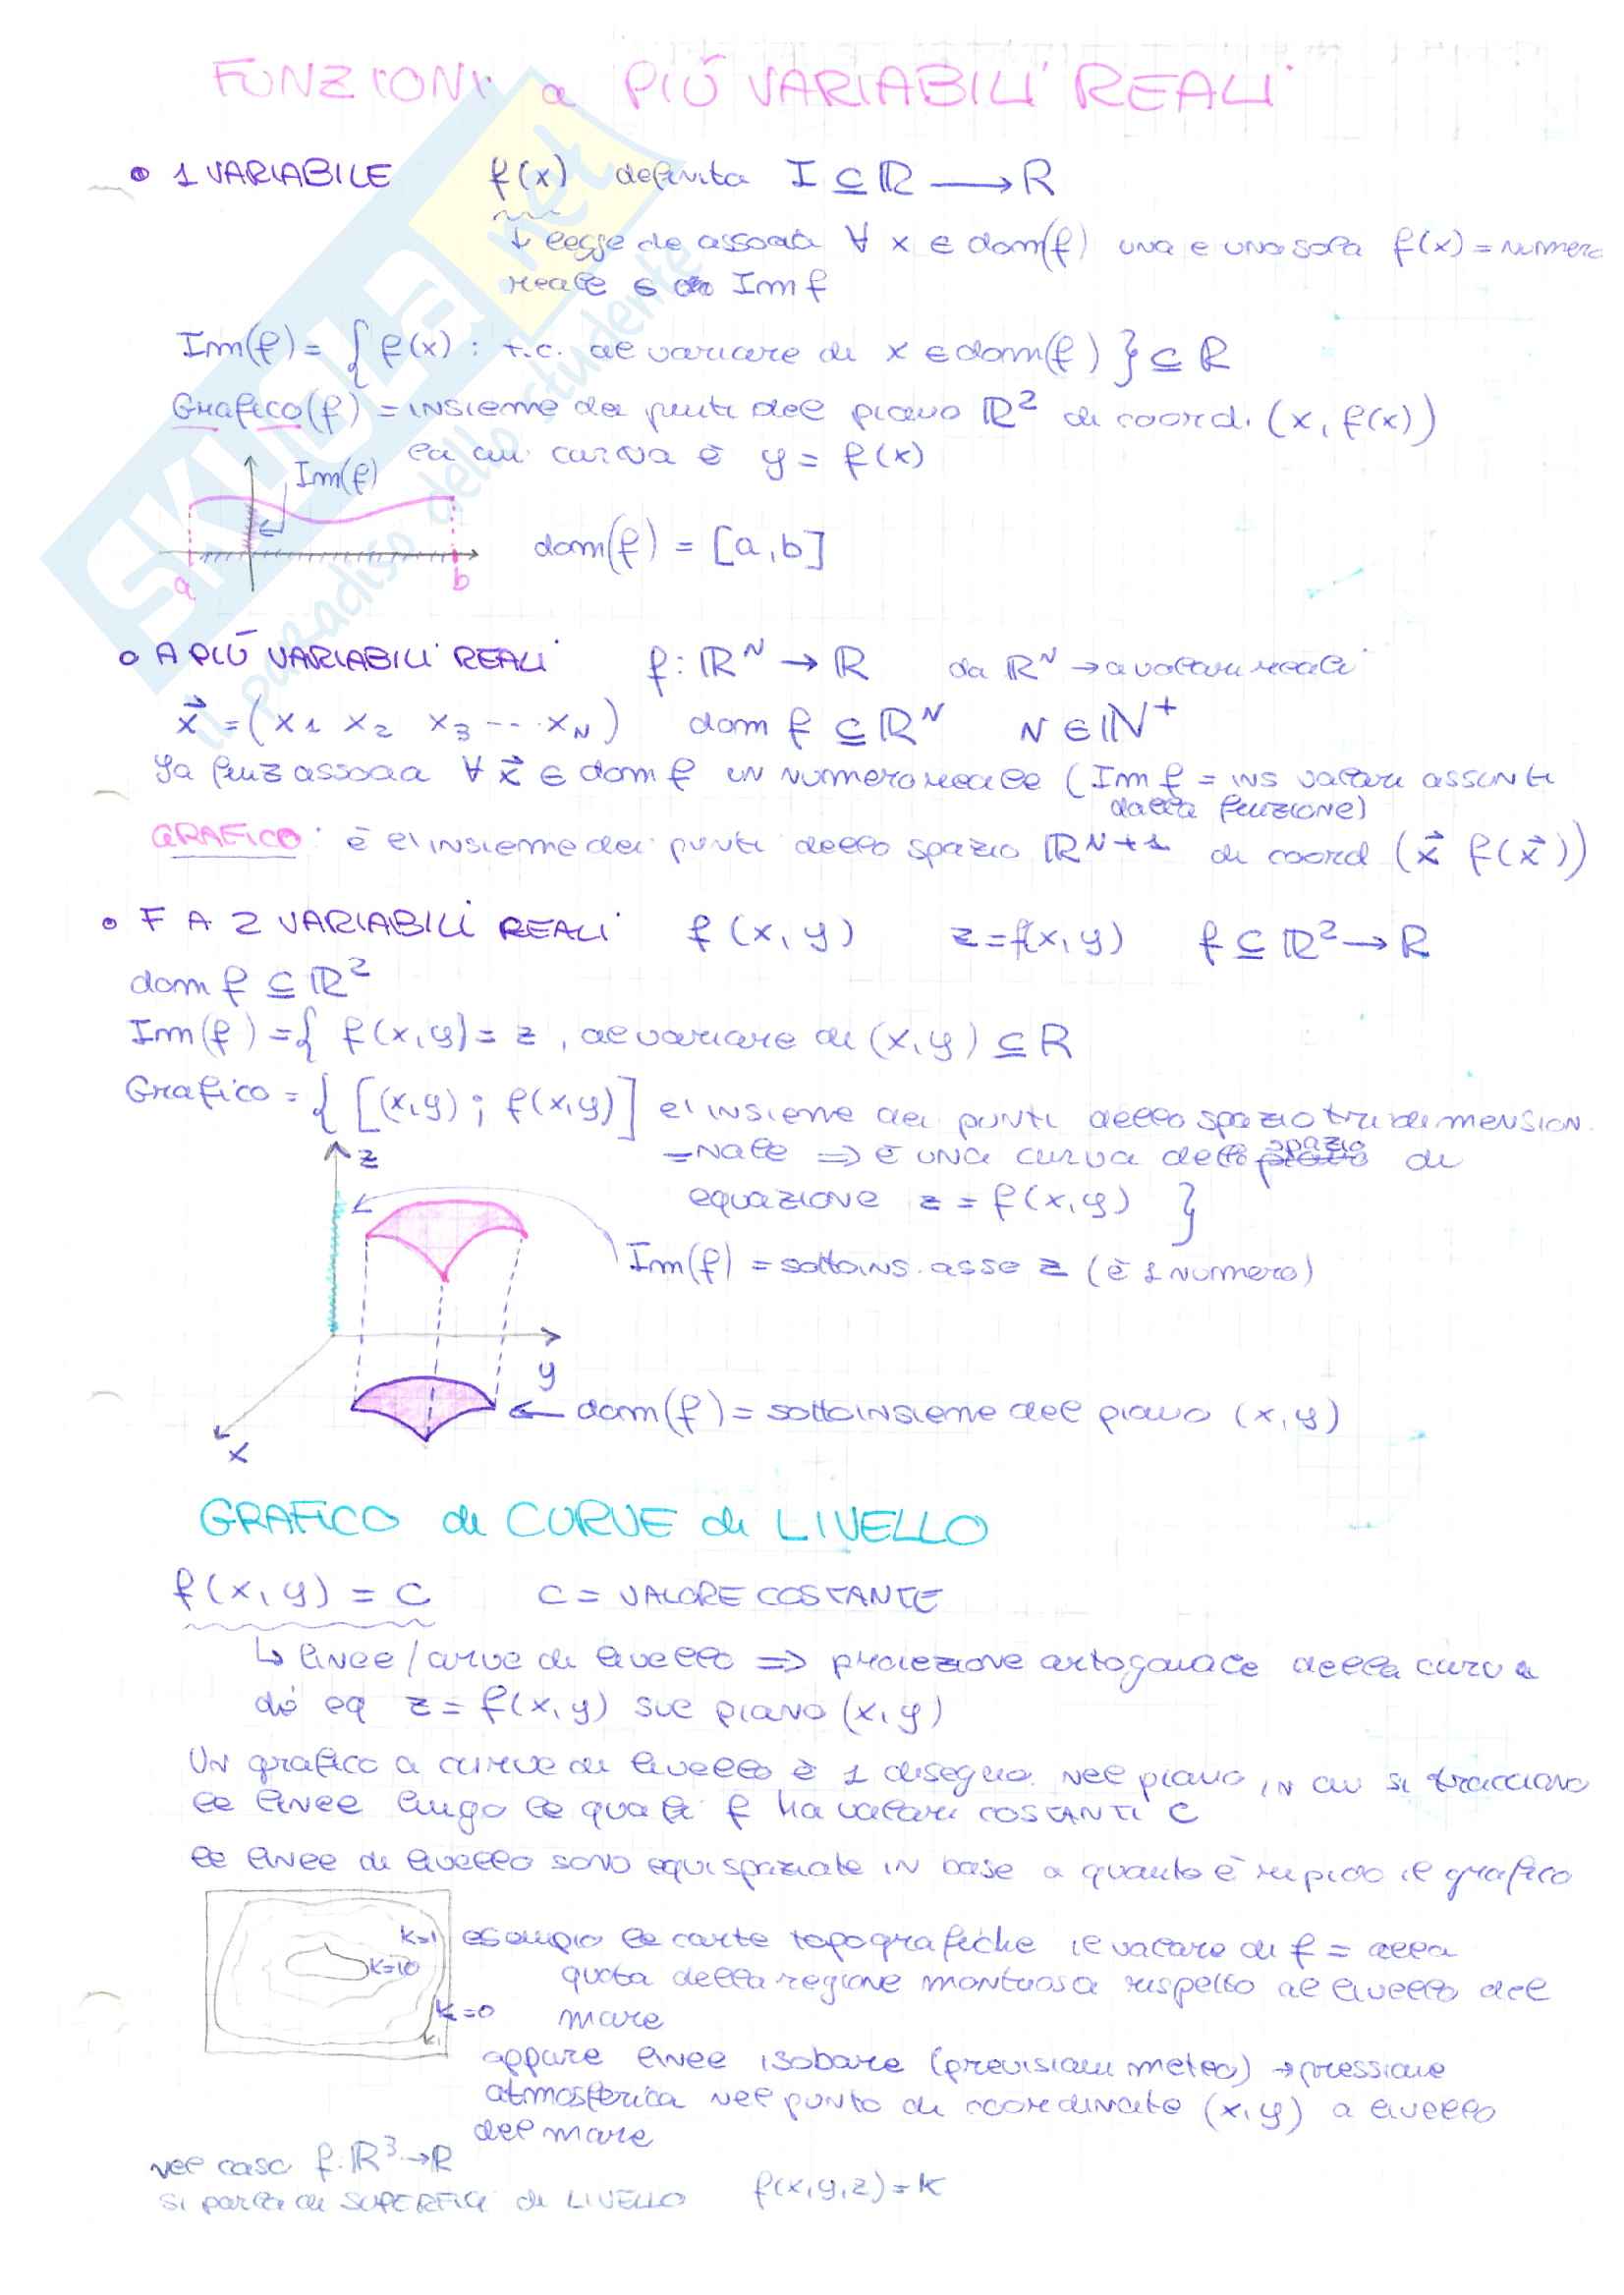 FUNZIONI a PIÙ VARIABILI REALI
• 1 VARIABILE f(x) definita I ⊆ ℝ ⟶ R
↓ legge che associa ∀ x ∈ dom(f) una e una sola f(x) = numero
reale ∈ Im f
Im(f) = { f(x) : t.c. al variare di x ∈ dom(f) } ⊆ R
Grafico(f) = insieme dei punti del piano ℝ² di coord. (x, f(x))
la cui curva è y = f(x)
Im(f)
dom(f) = [a, b]
a b
• A PIÙ VARIABILI REALI f: ℝᴺ → ℝ da ℝᴺ → a valori reali
x⃗ = (x₁ x₂ x₃ --- xN) dom f ⊆ ℝᴺ N ∈ ℕ⁺
La funz associa ∀ x⃗ ∈ dom f un numero reale (Im f = ins valori assunti
dalla funzione)
GRAFICO: è l'insieme dei punti dello spazio ℝᴺ⁺¹ di coord (x⃗ f(x⃗))
• F A 2 VARIABILI REALI f(x, y) z = f(x, y) f ⊆ ℝ² → R
dom f ⊆ ℝ²
Im(f) = { f(x, y) = z, al variare di (x, y) ⊆ R
Grafico = { [(x,y) ; f(x,y)] l'insieme dei punti dello spazio tridimension
-nale ⇒ è una curva dello spazio di
equazione z = f(x, y) }
z
Im(f) = sottoins. asse z (è 1 numero)
y
dom(f) = sottoinsieme del piano (x, y)
x
GRAFICO di CURVE di LIVELLO
f(x, y) = C C = VALORE COSTANTE
↳ linee/curve di livello ⇒ proiezione ortogonale della curva
di eq z = f(x, y) sul piano (x, y)
Un grafico a curve di livello è 1 disegno nel piano in cui si tracciano
le linee lungo le quali f ha valori COSTANTI C
le linee di livello sono equispaziate in base a quanto è ripido il grafico
k=1 esempio le carte topografiche il valore di f = alla
k=10 quota della regione montuosa rispetto al livello del
k=0 mare
oppure linee isobare (previsioni meteo) → pressione
atmosferica nel punto di coordinate (x, y) a livello
del mare
nel caso f: ℝ³ → R
si parla di SUPERFICI di LIVELLO f(x, y, z) = k
SKUOLA.net
il paradiso dello studente